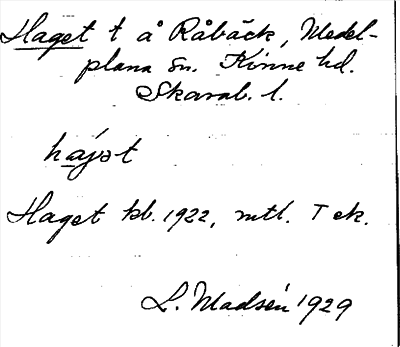 Haget t å Råbäck, Medel-
plana sn. Kinne hd.
Skarab. l.
hájət
Haget kb. 1922, mtl. T ek.
L. Madsén 1929